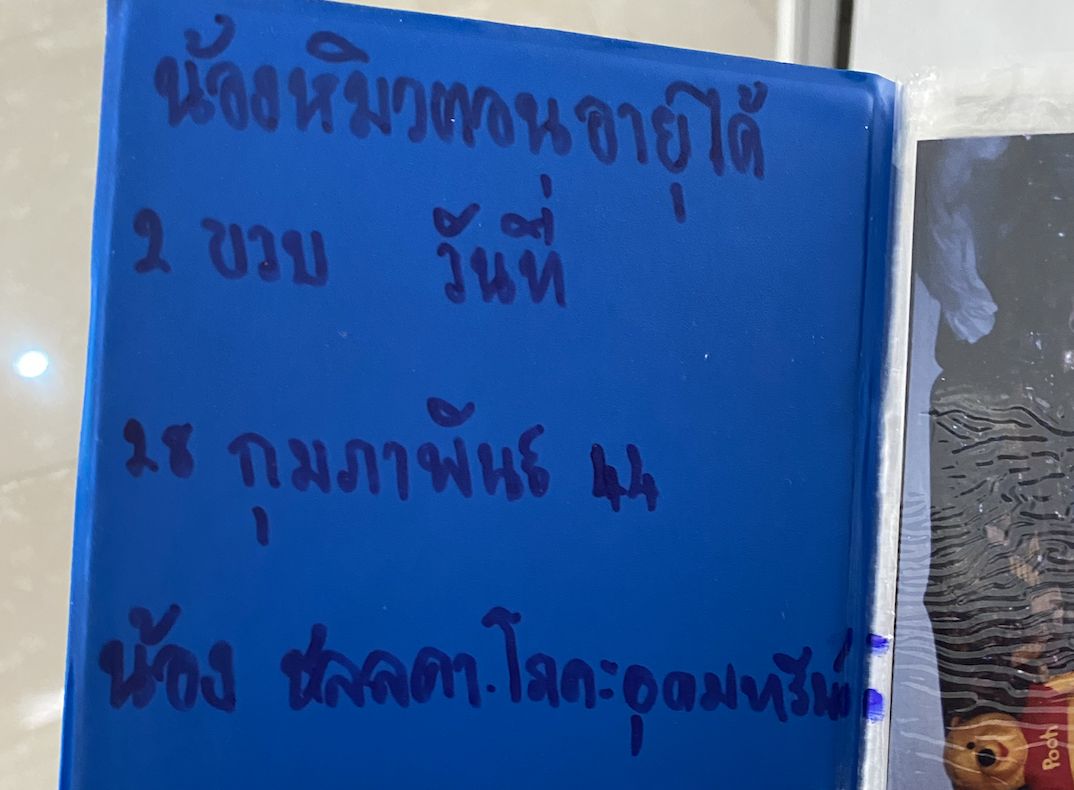 น้องหมิวตอนอายุได้
2 ขวบ วันที่
28 กุมภาพันธ์ 44
น้อง ชลลดา.โภคะอุดมทรัพย์
Pooh